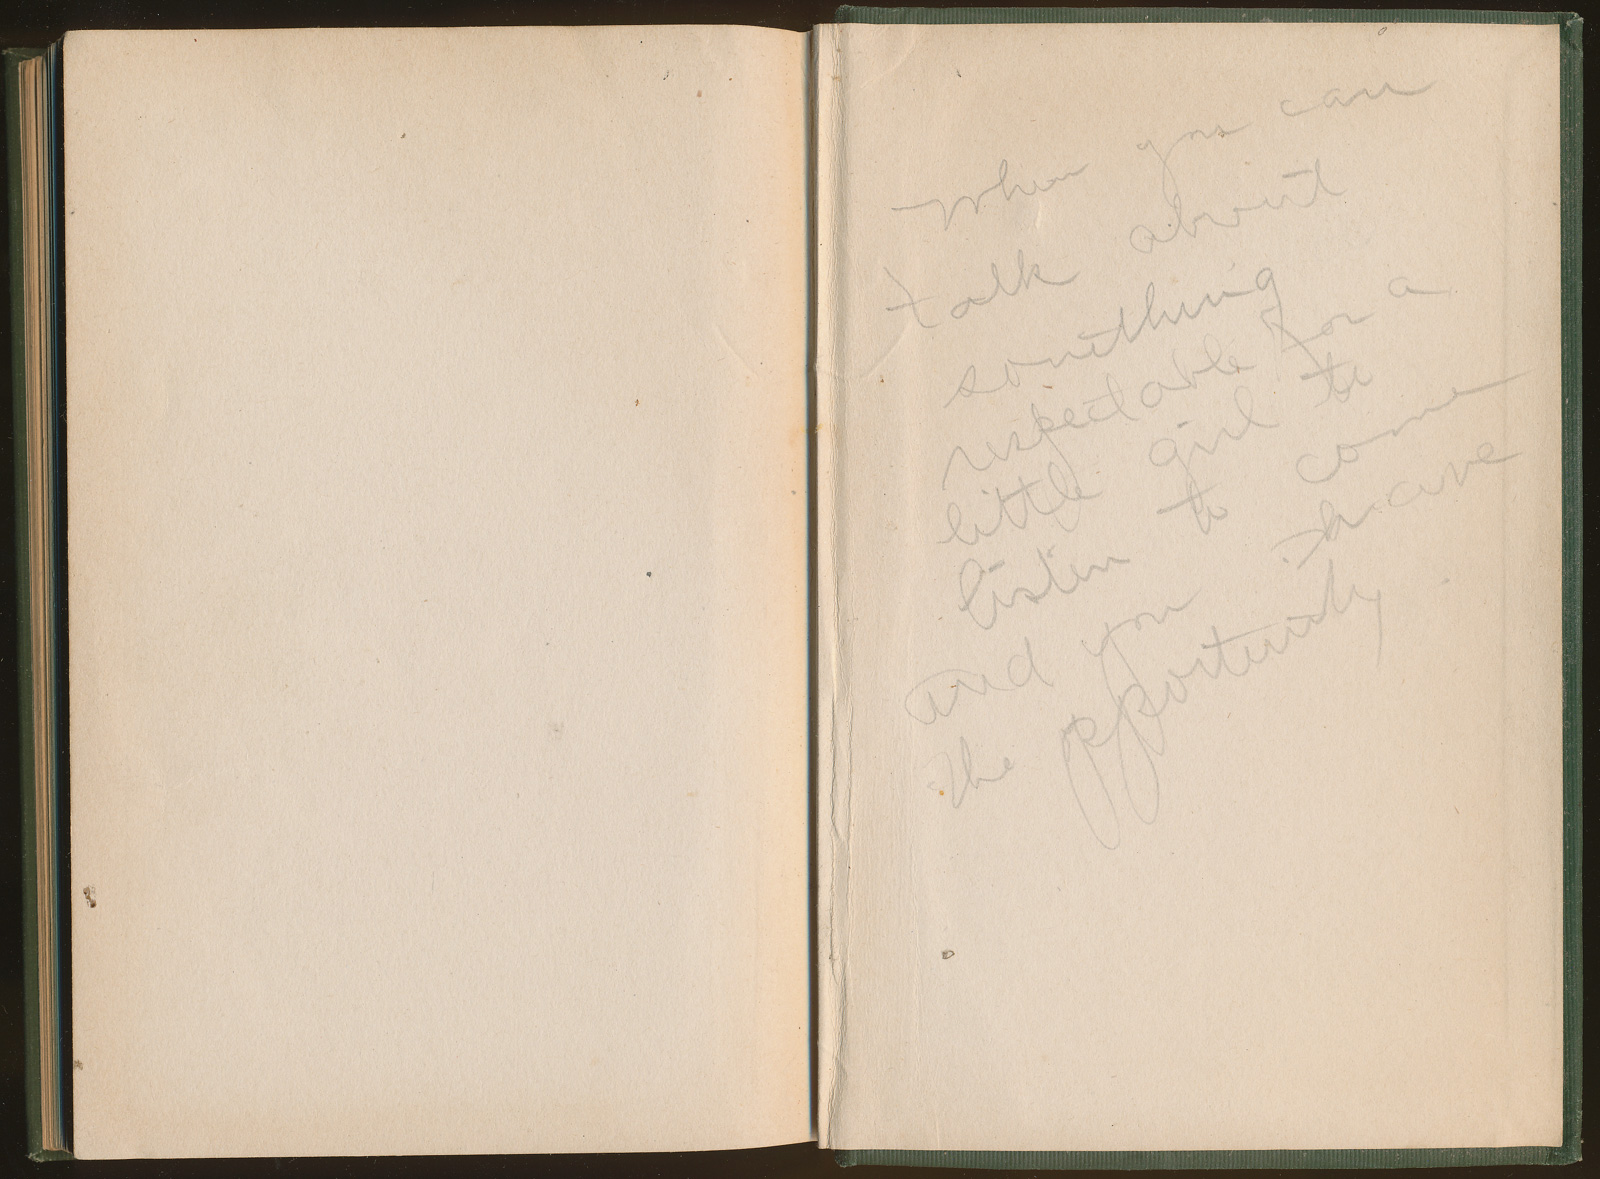 When you can
talk about
something
respectable for a
little girl to
listen to come
and you have
the opportunity